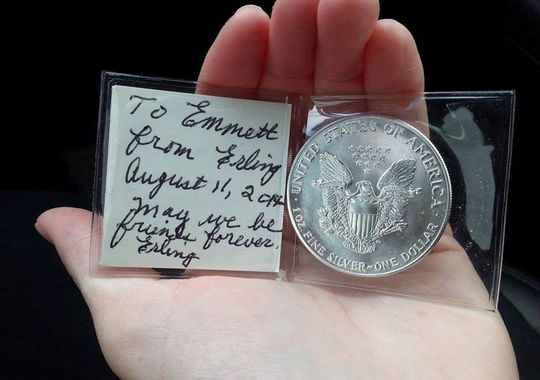 To Emmett
from Erling
August 11, 2
May we be
friends forever.
Erling
UNITED STATES OF AMERICA
1 OZ. FINE SILVER~ONE DOLLAR